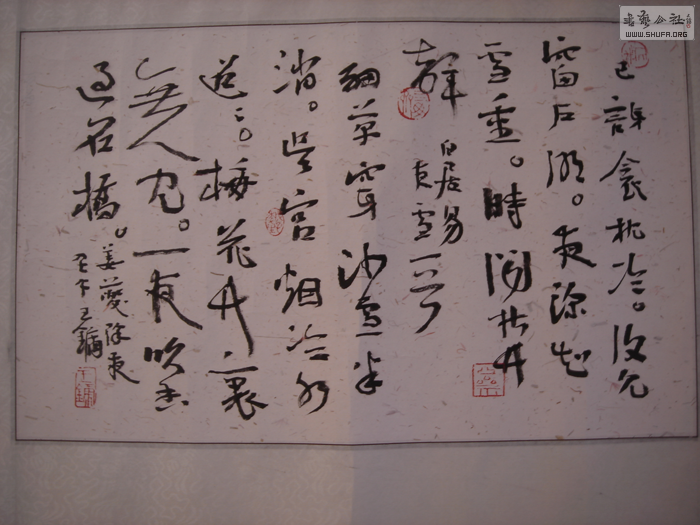 已訝衾枕冷。復見
窗户明。夜深知
雪重。時聞折竹
聲
白居易
夜雪一首
細草穿沙雪半
消。吴宫烟冷水
迢〻。梅花竹裏
無人見。一夜吹香
過石橋。
姜夔除夜
壬午王鏞
书艺公社
WWW.SHUFA.ORG